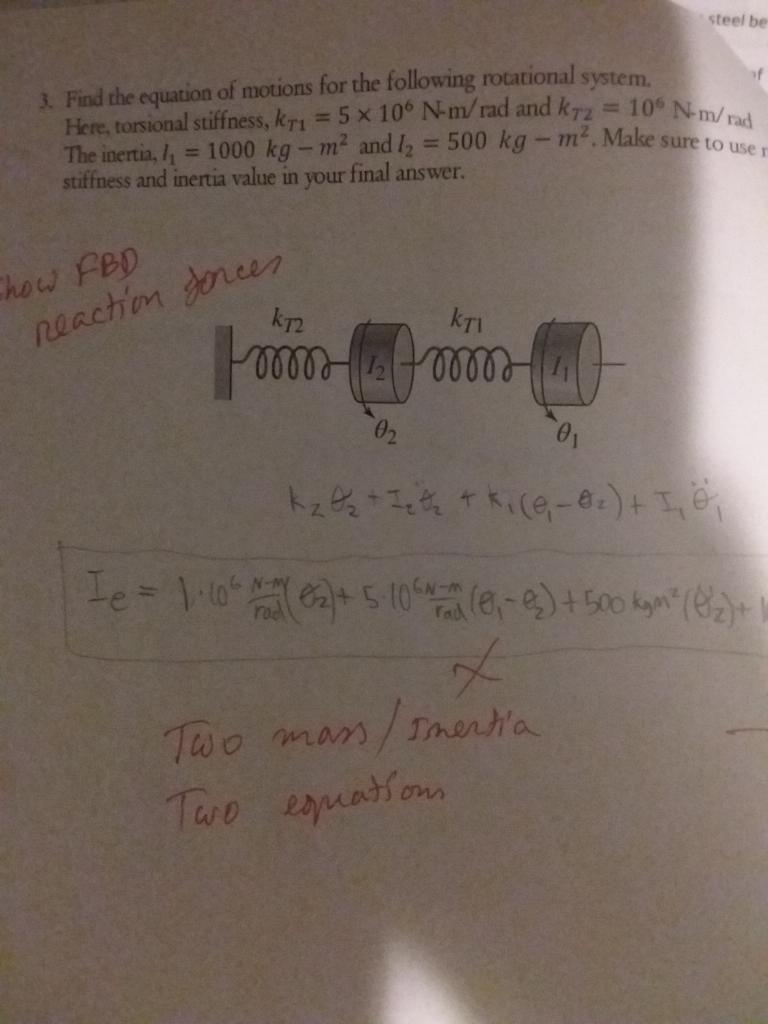 steel be
of
3. Find the equation of motions for the following rotational system.
Here, torsional stiffness, k_T1 = 5 × 10⁶ N-m/rad and k_T2 = 10⁶ N-m/rad
The inertia, I₁ = 1000 kg − m² and I₂ = 500 kg − m². Make sure to use
stiffness and inertia value in your final answer.
show FBD
reaction forces
k_T2 k_T1
I₂ I₁
θ₂ θ₁
k₂θ₂ + I₂θ̈₂ + k₁(θ₁−θ₂) + I₁θ̈₁
I_e = 1·10⁶ N-m/rad (θ₂) + 5·10⁶ N-m/rad (θ₁−θ₂) + 500 kgm² (θ̈₂) + 1
X
Two mass/Inertia
Two equations